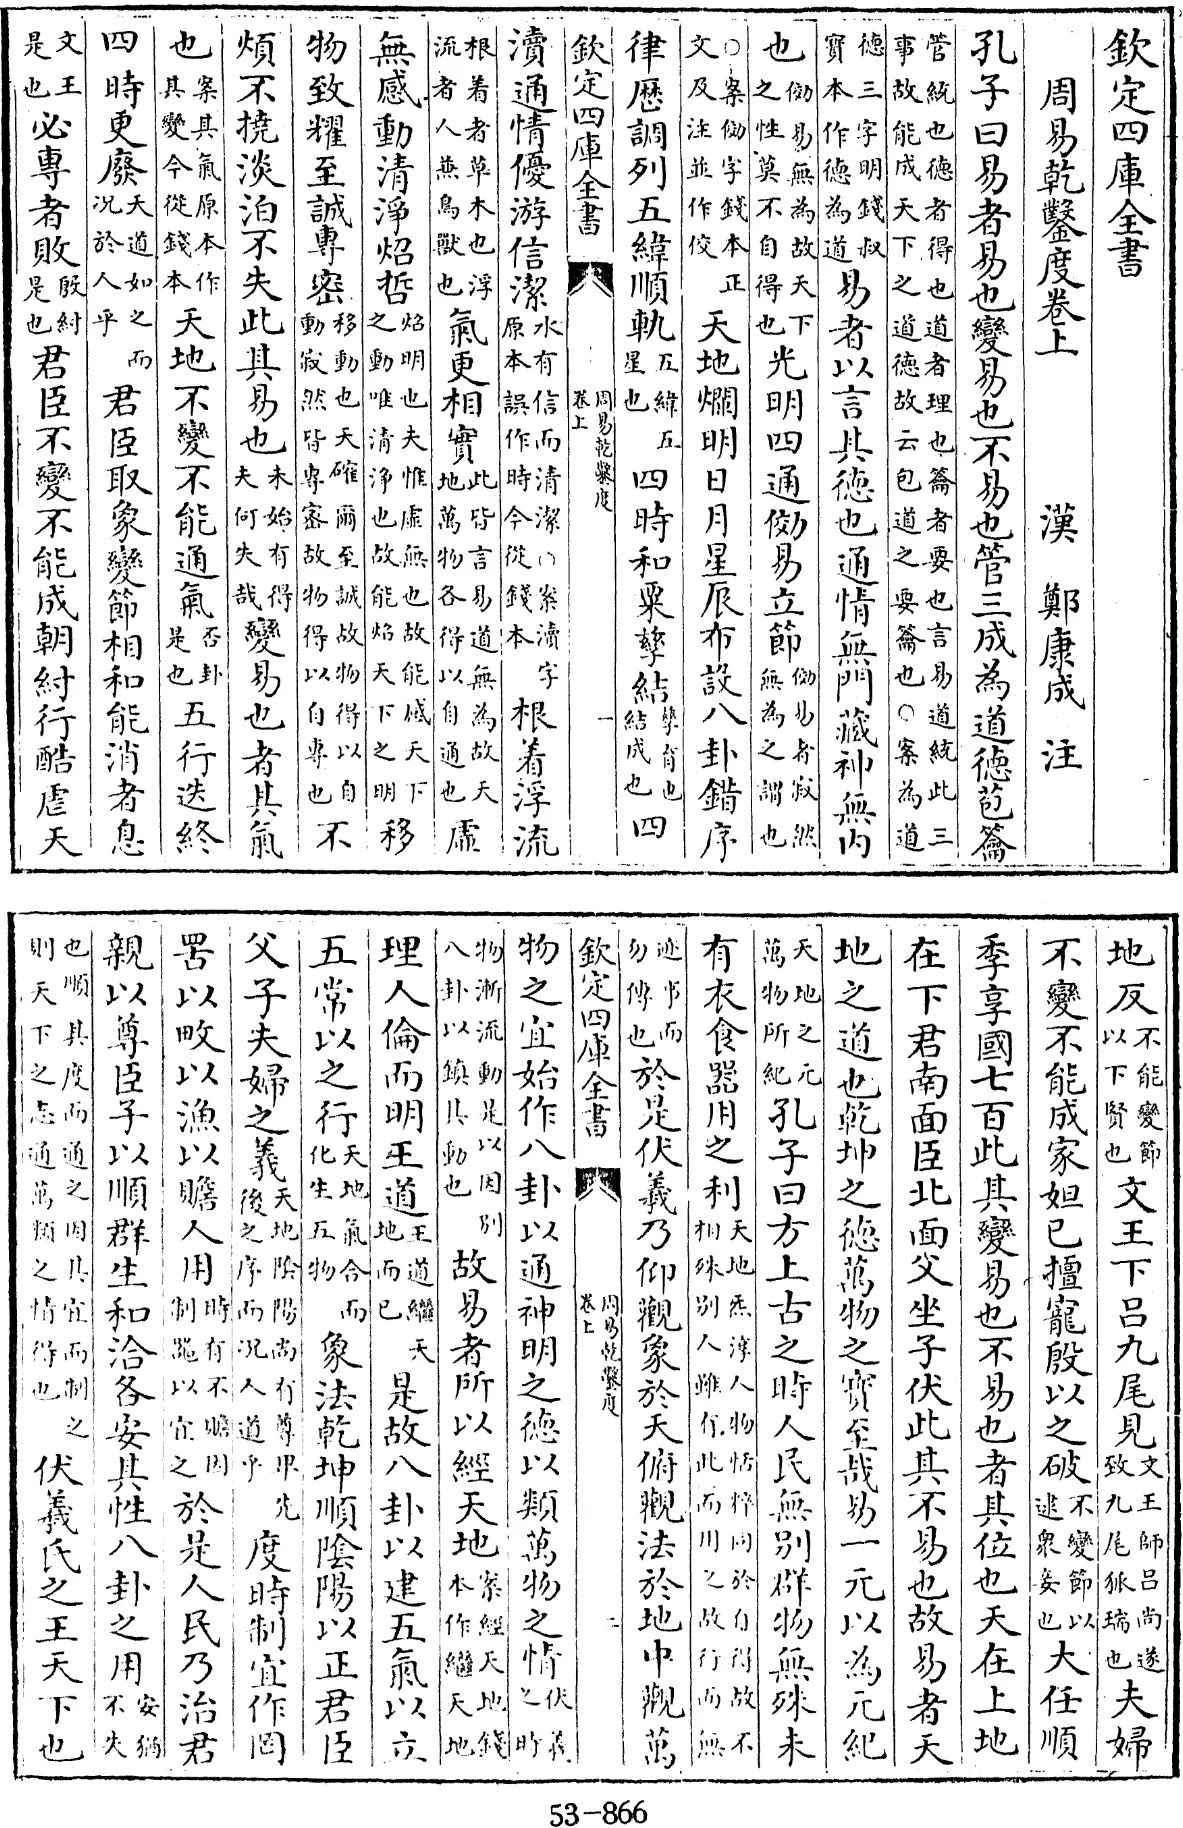 欽定四庫全書
周易乾鑿度卷上 漢 鄭康成 注
孔子曰易者易也變易也不易也管三成為道德苞籥
管統也德者得也道者理也籥者要也言易道統此三
事故能成天下之道德故云包道之要籥也○案為道
德三字明錢叔寳本作德為道 易者以言其德也通情無門藏神無内
也 俲易無為故天下之性莫不自得也 光明四通俲易立節 俲易者寂然無為之謂也
○案俲字錢本正文及注並作佼 天地爛明日月星辰布設八卦錯序
律歴調列五緯順軌 五緯五星也 四時和粟孳結 孳育也結成也 四
欽定四庫全書 周易乾鑿度 卷上 一
瀆通情優游信潔 水有信而清潔○案瀆字原本誤作時今從錢本 根着浮流
根着者草木也浮流者人兼鳥獸也 氣更相實 此皆言易道無為故天地萬物各得以自通也 虛
無感動清淨炤哲 炤明也夫惟虛無也故能感天下之動唯清淨也故能炤天下之明 移
物致耀至誠專密 移動也天確爾至誠故物得以自動寂然皆專密故物得以自專也 不
煩不撓淡泊不失此其易也 未始有得夫何失哉 變易也者其氣
也 案其氣原本作其變今從錢本 天地不變不能通氣 否卦是也 五行迭終
四時更廢 天道如之而况於人乎 君臣取象變節相和能消者息
文王是也 必專者敗 殷紂是也 君臣不變不能成朝紂行酷虐天
地反 不能變節以下賢也 文王下呂九尾見 文王師呂尚遂致九尾狐瑞也 夫婦
不變不能成家妲已擅寵殷以之破 不變節以逮衆妾也 大任順
季享國七百此其變易也不易也者其位也天在上地
在下君南面臣北面父坐子伏此其不易也故易者天
地之道也乾坤之德萬物之寳至哉易一元以為元紀
天地之元萬物所紀 孔子曰方上古之時人民無别群物無殊未
有衣食器用之利 天地炁淳人物恬粹同於自得故不相殊别人雖有此而用之故行而無
迹事而勿傳也 於是伏羲乃仰觀象於天俯觀法於地中觀萬
欽定四庫全書 周易乾鑿度 卷上 二
物之宜始作八卦以通神明之德以類萬物之情 伏羲之時
物漸流動是以因别八卦以鎮其動也 故易者所以經天地 案經天地錢本作繼天地
理人倫而明王道 王道繼天地而已 是故八卦以建五氣以立
五常以之行 天地氣合而化生五物 象法乾坤順陰陽以正君臣
父子夫婦之義 天地隂陽尚有尊卑先後之序而况人道乎 度時制宜作罔
罟以畋以漁以贍人用 時有不贍因制器以宜之 於是人民乃治君
親以尊臣子以順群生和洽各安其性八卦之用 安猶不失
也順其度而通之因其宜而制之則天下之志通萬類之情得也 伏羲氏之王天下也
53-866